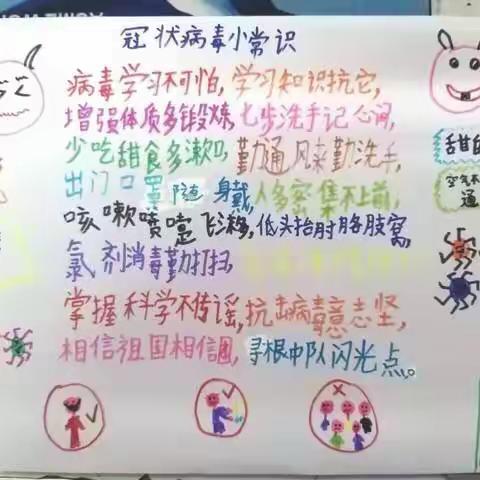 冠状病毒小常识
病毒学习不可怕,学习知识抗它,
增强体质多锻炼,七步洗手记心间,
少吃甜食多漱口,勤通风来勤洗手,
出门口罩随身戴,人多密集不上前,
咳嗽喷嚏飞沫多,低头抬肘胳肢窝,
氯剂消毒勤打扫,
掌握科学不传谣,抗击病毒意志坚,
相信祖国相信,寻根中队闪光点。
甜
空气不
通